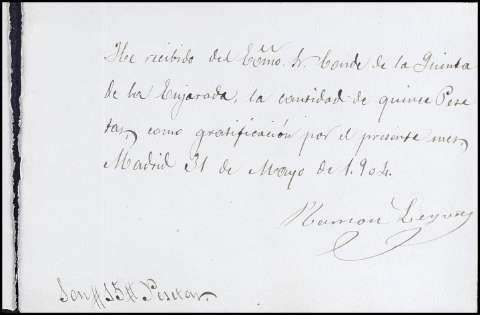 He recibido del Excmo. Sr. Conde de la Quinta
de la Enjarada, la cantidad de quince Pese
tas, como gratificación por el presente mes,
Madrid 31 de Mayo de 1.904.
Ramon
Son # 15 # Pesetas,